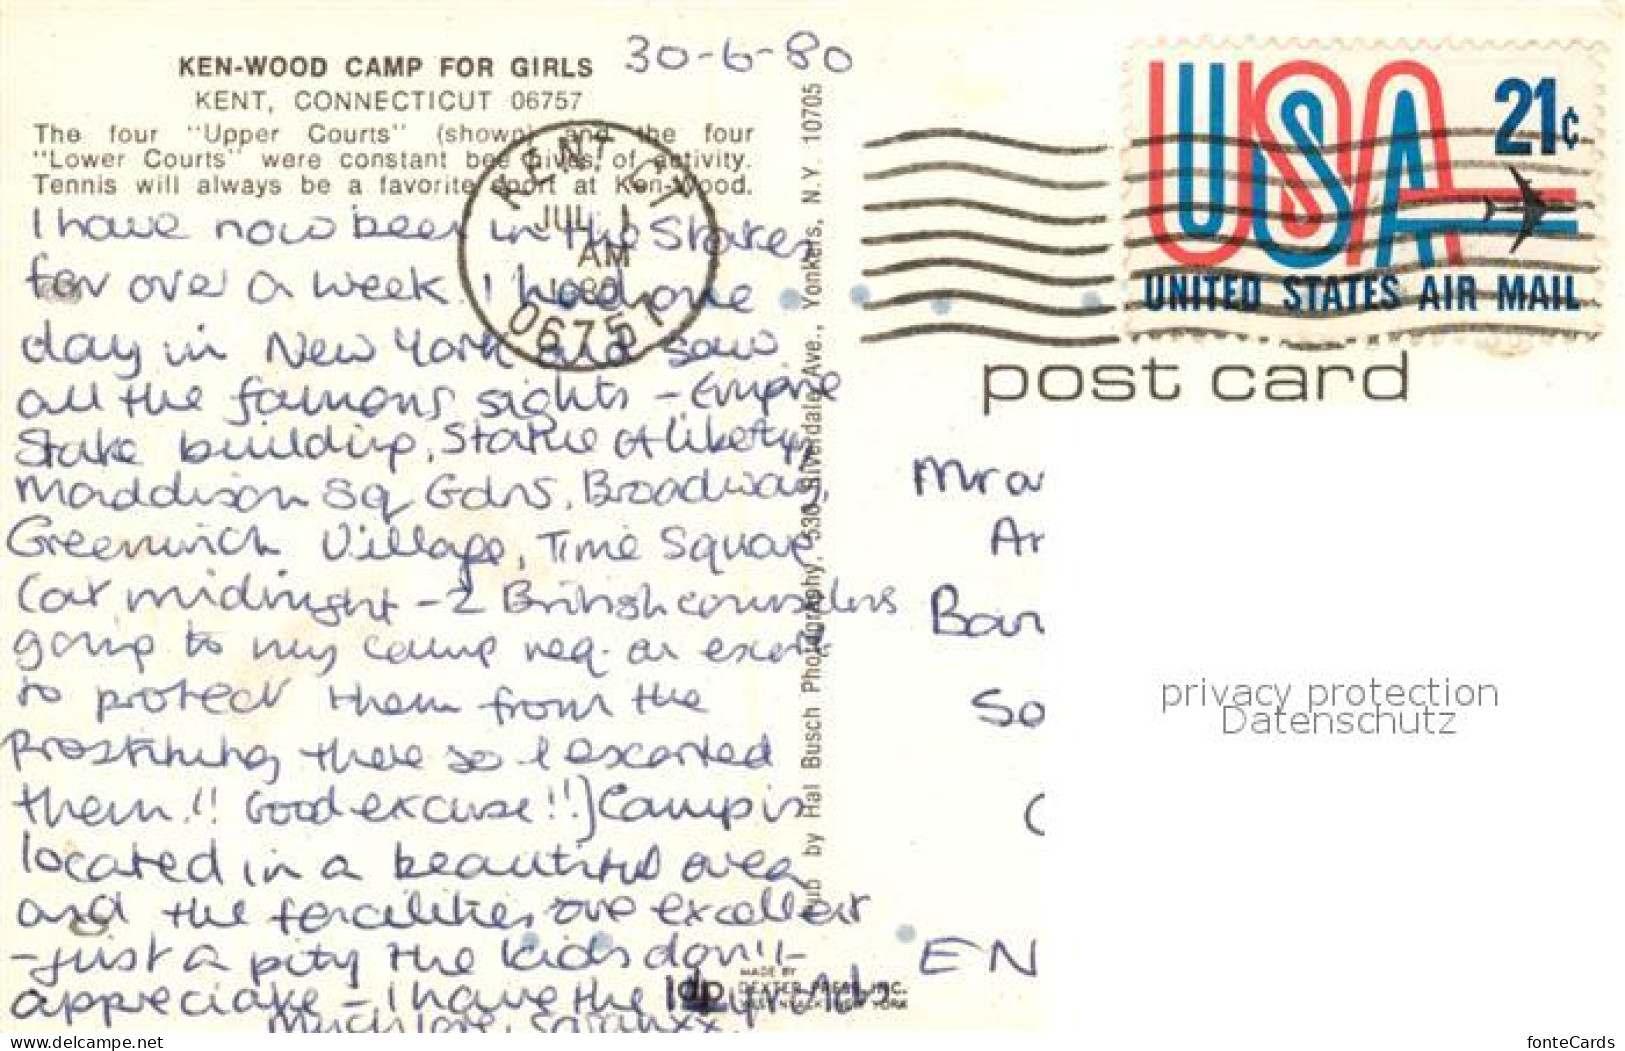 30-6-80
KEN-WOOD CAMP FOR GIRLS
KENT, CONNECTICUT 06757
The four "Upper Courts" (shown) and the four
"Lower Courts" were constant bee hives of activity.
Tennis will always be a favorite sport at Ken-Wood.
I have now been in the States
for over a week. I had one
day in New York and saw
all the famous sights - Empire
State building, Statue of liberty,
Maddison Sq Gdns, Broadway,
Greenwich Village, Time Square
(at midnight - 2 British counselors
going to my camp req. an escort
to protect them from the
there so I escorted
them!! Good excuse!!) Camp is
located in a beautiful area
and the facilities are excellent
- just a pity the kids don't
appreciate - I have the 12 yr olds
Much love, Sarah xx
KENT CT
JUL 1
AM
1980
06757
Pub by Hal Busch Photography, 530 Riverdale Ave., Yonkers, N.Y. 10705
USA 21c
UNITED STATES AIR MAIL
post card
Mr a
Ar
Bar
So
C
EN
privacy protection
Datenschutz
dp
MADE BY
DEXTER PRESS, INC.
WEST NYACK, NEW YORK
www.delcampe.net
fonteCards